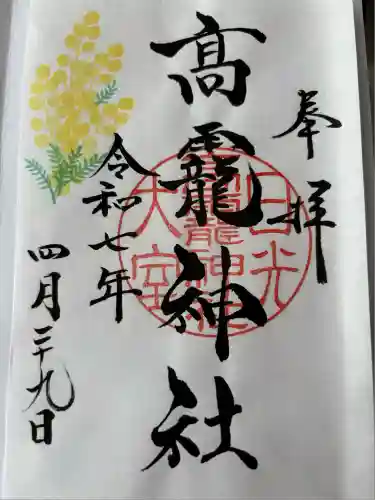 奉拝
高龗神社
日光
高龗神社
大室
令和七年
四月二十九日